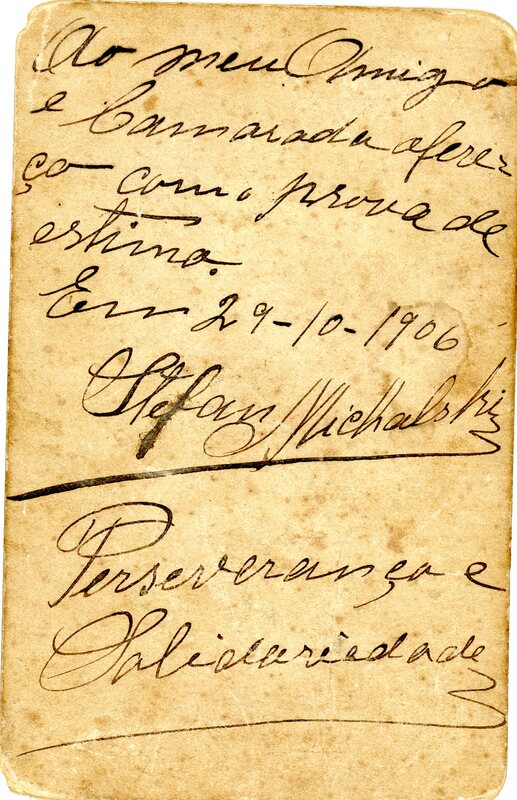 Ao meu Amigo
e Camarada offere-
ço como prova de
estima.
Em 29-10-1906
Stefan Michalski
Perseverança e
Solidariedade